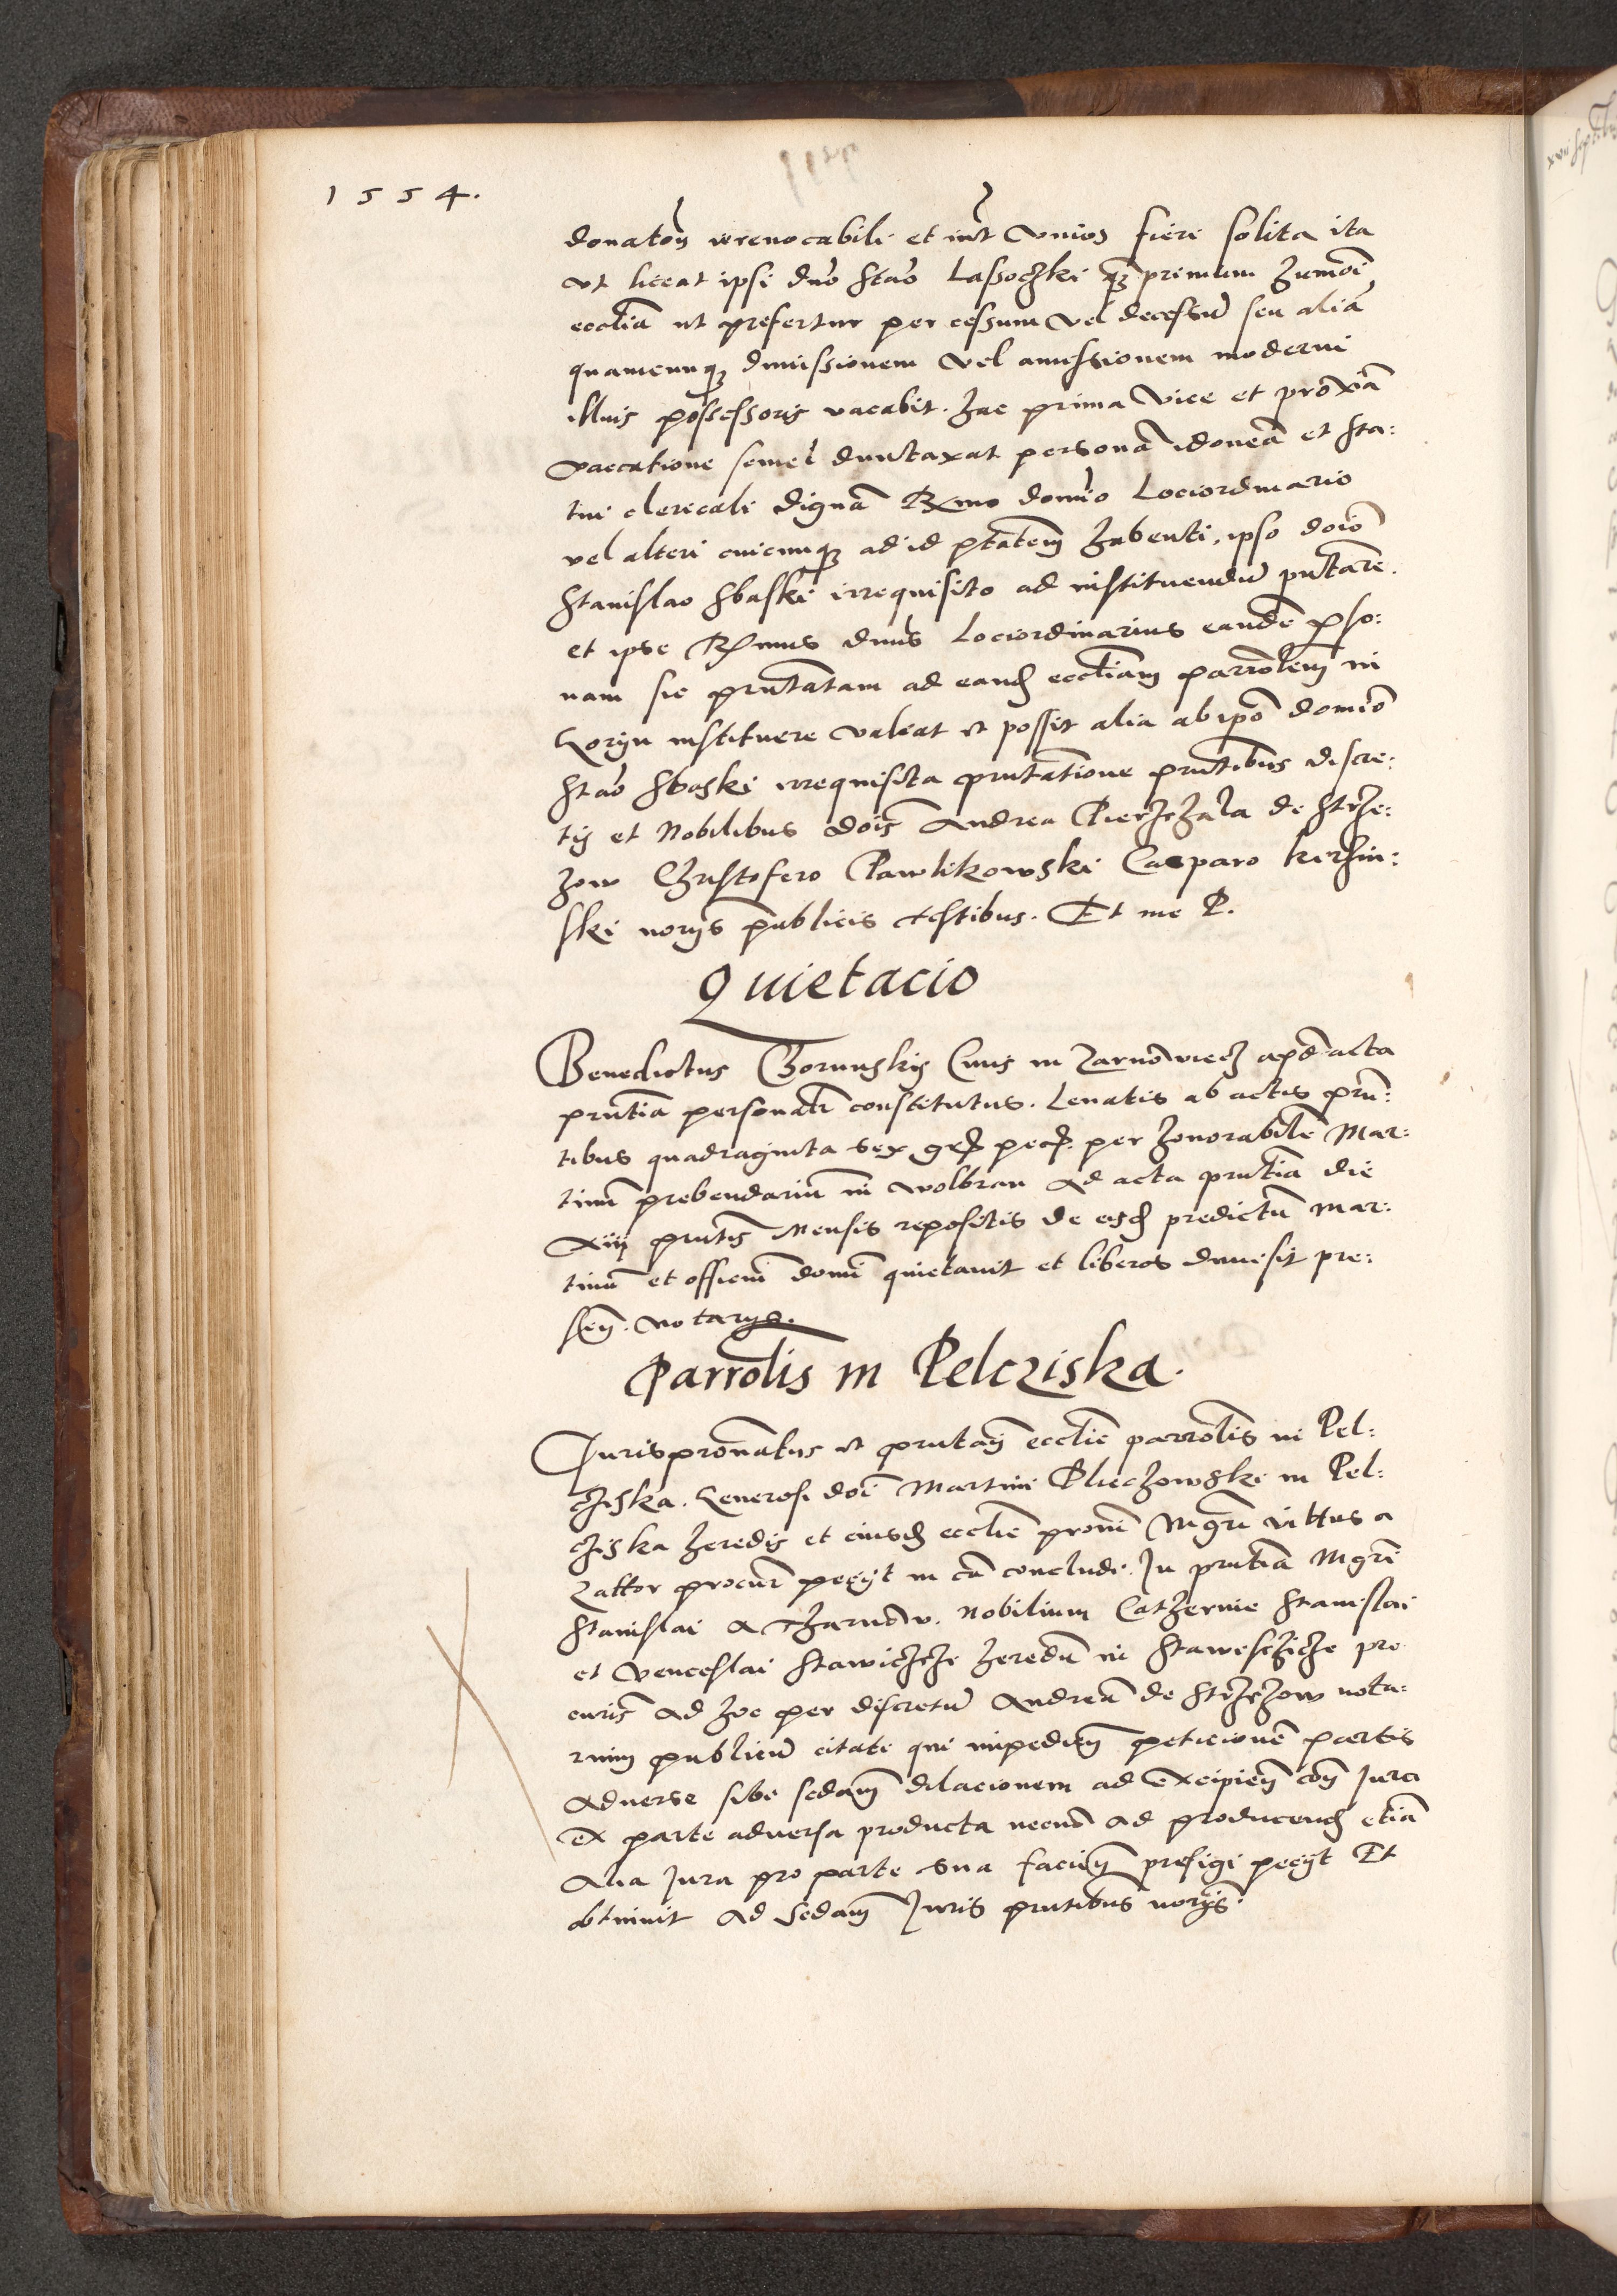 1554.
donatoñ irrevocabili et int̃ vivos fieri solita ita
vt liceat ipsi dno Stao Lassoczki q̃ primum humõi
eccliã ut prefertur per cessum vel decessũ seu aliã
quamcunq; dimissionem vel amissionem moderni
illius possessoris vacabit. hac prima vice et proxĩa
vaccatione semel duntaxat personã idoneã et sta:
tui clericali dignã Rmo domio Lociordinario
vel alteri cuicunq; ad id ptatem habenti, ipso doio
Stanislao Sbaski irrequisito ad instituendũ pñtare.
et ipse Rmus dnus Lociordinarius eandẽ pso:
nam sic pñtatam ad eand ecctiam parrolem in
Goryn instituere valeat et possit alia ab ipo domio
Stao Sbaski irrequisita pñtatione pñtibus discre:
tis et Nobilibus dois Andrea Pierzchala de Strze:
zow Christofero Pawlikowski Casparo kirsin:
ski noriis publicis testibus. Et me P.
Quietacio
Benedictus Gorunskij Civis in Zarnowiecz apd acta
pñtia personalr constitutus. Levatis ab actis pñ:
tibus quadraginta sex gr pec. per honorabilẽ Mar:
tinũ prebendariũ in Wolbram ad acta pñtia die
xiii pñtis Mensis repositis de eisd predictũ Mar:
tinũ et officiũ domi quietavit et liberos dimisit pre:
señ. notarijs.
Parrolis in Pelcziska.
Jurispronatus et pñtañ ecclie parrolis in Pel:
cziska. Generosi doi Martini Plieczowski in Pel:
cziska heredis et eiusd ecclie proni Mgri vittus a
Zattor procur petijt in cã concludi. In pñtia Mgri
Stanislai a Tharnow. Nobilium Catherine Stanislai
et Venceslai Stawiczki heredũ in Stawiscziche pro
curis ad hoc per discretũ Andreã de Strzezow nota:
rium publicũ citati qui impedieñ peticionẽ partis
adverse sibi sedam dilacionem ad Excipieñ coñ Jura
ex parte adversa producta necnõ ad producend etiã
alia Jura pro parte sua facieñ prefigi petijt Et
obtinuit ad sedam Juris pñtibus noriis.